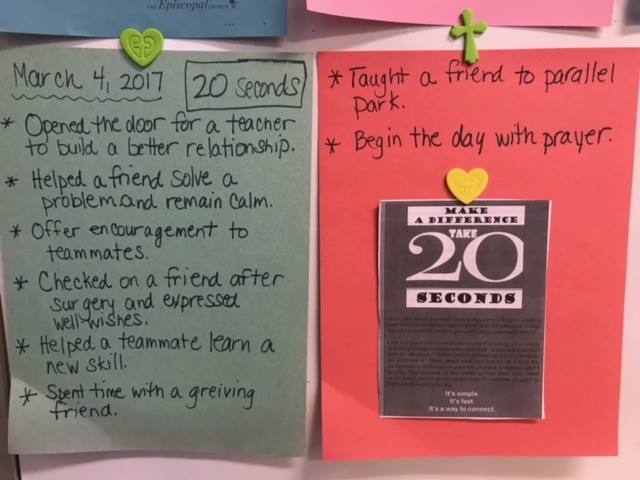 THE Episcopal CHURCH
March 4, 2017
20 Seconds
* Opened the door for a teacher
to build a better relationship.
* Helped a friend solve a
problem and remain calm.
* Offer encouragement to
teammates.
* Checked on a friend after
surgery and expressed
well-wishes.
* Helped a teammate learn a
new skill.
* Spent time with a greiving
friend.
* Taught a friend to parallel
park.
* Begin the day with prayer.
MAKE
A DIFFERENCE
TAKE
20
SECONDS
It's simple.
It's fast.
It's a way to connect.